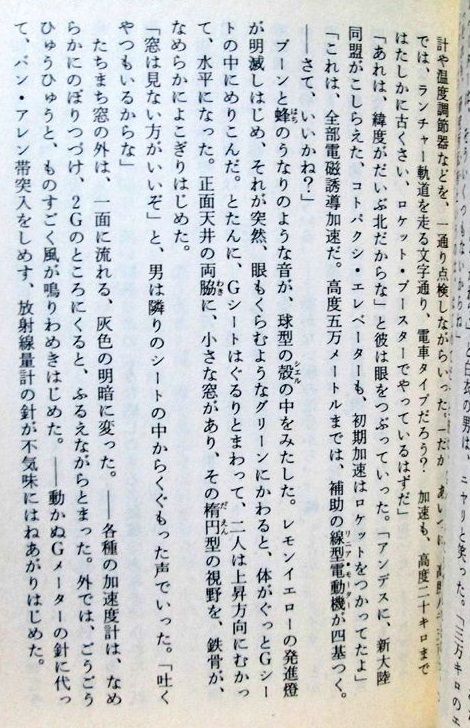 白衣の男は、ニヤリと笑った。「三万キロの
計や温度調節器などを、一通り点検しながらいった。「だが、あいつは、高度
では、ランチャー軌道を走る文字通り、電車タイプだろう？　加速も、高度二十キロまで
はたしかに古くさい、ロケット・ブースターでやっているはずだ」
「あれは、緯度がだいぶ北だからな」と彼は眼をつぶっていった。「アンデスに、新大陸
同盟がこしらえた、コトパクシ・エレベーターも、初期加速はロケットをつかってたよ」
「これは、全部電磁誘導加速だ。高度五万メートルまでは、補助の線型電動機が四基つく。
――さて、いいかね？」
ブーンと蜂のうなりのような音が、球型の殻の中をみたした。レモンイエローの発進燈
が明滅しはじめ、それが突然、眼もくらむようなグリーンにかわると、体がぐっとGシー
トの中にめりこんだ。とたんに、Gシートはぐるりとまわって、二人は上昇方向にむかっ
て、水平になった。正面天井の両脇に、小さな窓があり、その楕円型の視野を、鉄骨が、
なめらかによこぎりはじめた。
「窓は見ない方がいいぞ」と、男は隣りのシートの中からくぐもった声でいった。「吐く
やつもいるからな」
たちまち窓の外は、一面に流れる、灰色の明暗に変った。――各種の加速度計は、なめ
らかにのぼりつづけ、2Gのところにくると、ふるえながらとまった。外では、ごうごう
ひゅうひゅうと、ものすごく風が鳴りわめきはじめた。――動かぬGメーターの針に代っ
て、バン・アレン帯突入をしめす、放射線量計の針が不気味にはねあがりはじめた。